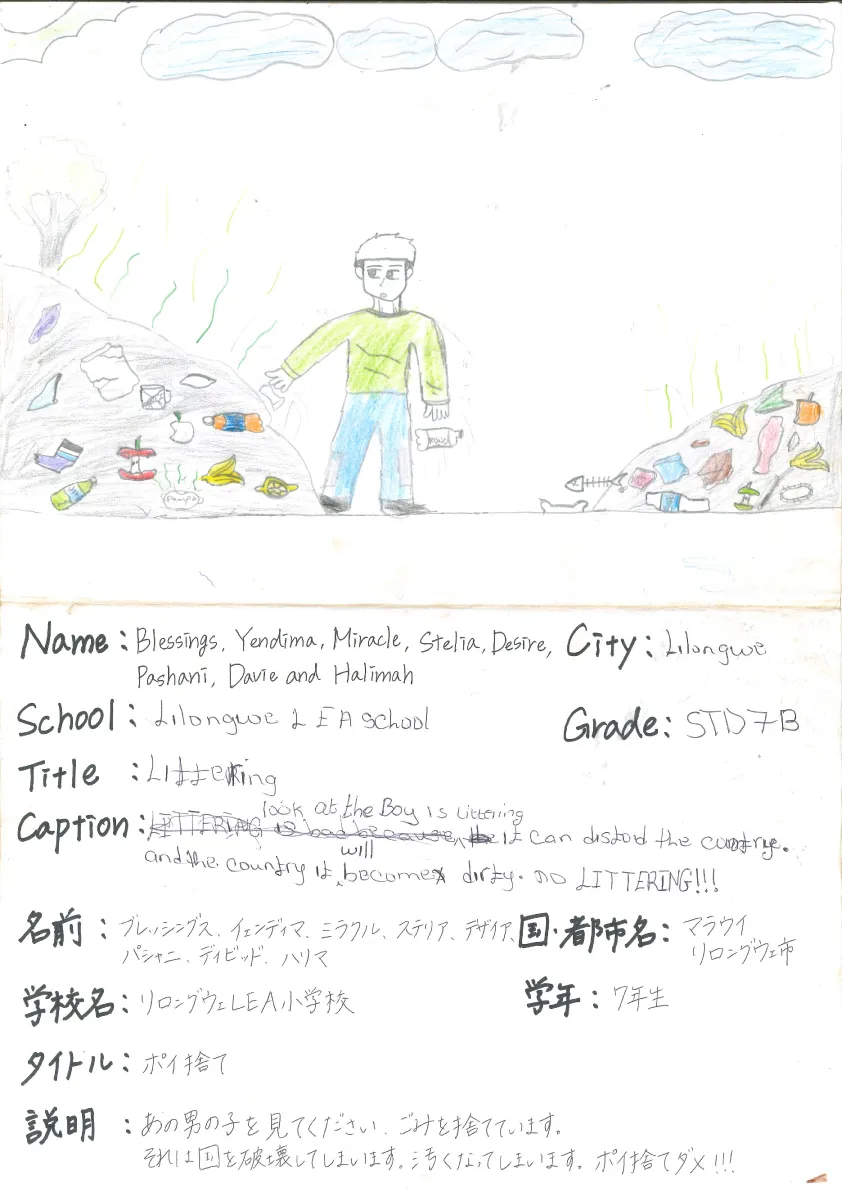 maid
Pampa
Name: Blessings, Yendima, Miracle, Stelia, Desire,
Pashani, Davie and Halimah
City: Lilongwe
School: Lilongwe LEA school
Grade: STD7B
Title: Littering
Caption: look at the Boy is Littering
LITTERING is bad because the it can distod the countrye.
and the country it will become dirty. no LITTERING!!!
名前: ブレッシングス、イェンディマ、ミラクル、ステリア、デザイア、
パシャニ、デイビッド、ハリマ
国・都市名: マラウイ
リロングウェ市
学校名: リロングウェLEA小学校
学年: 7年生
タイトル: ポイ捨て
説明: あの男の子を見てください、ごみを捨てています。
それは国を破壊してしまいます。汚くなってしまいます。ポイ捨てダメ!!!